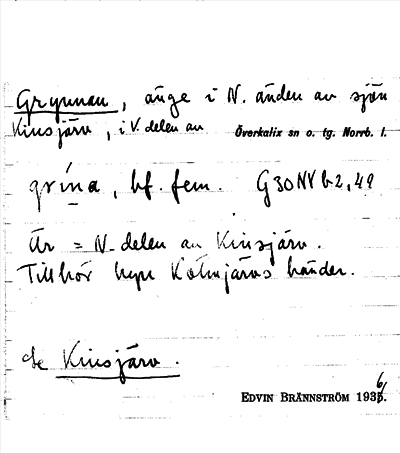 Grynnan, änge i N. änden av sjön
Kinsjärv, i V. delen av Överkalix sn o. tg. Norrb. l.
grína, bf. fem. G30NV b2,49
Är = N. delen av Kinsjärv.
Tillhör byn Kölmjärvs händer.
Se Kinsjärv.
EDVIN BRÄNNSTRÖM 1936.